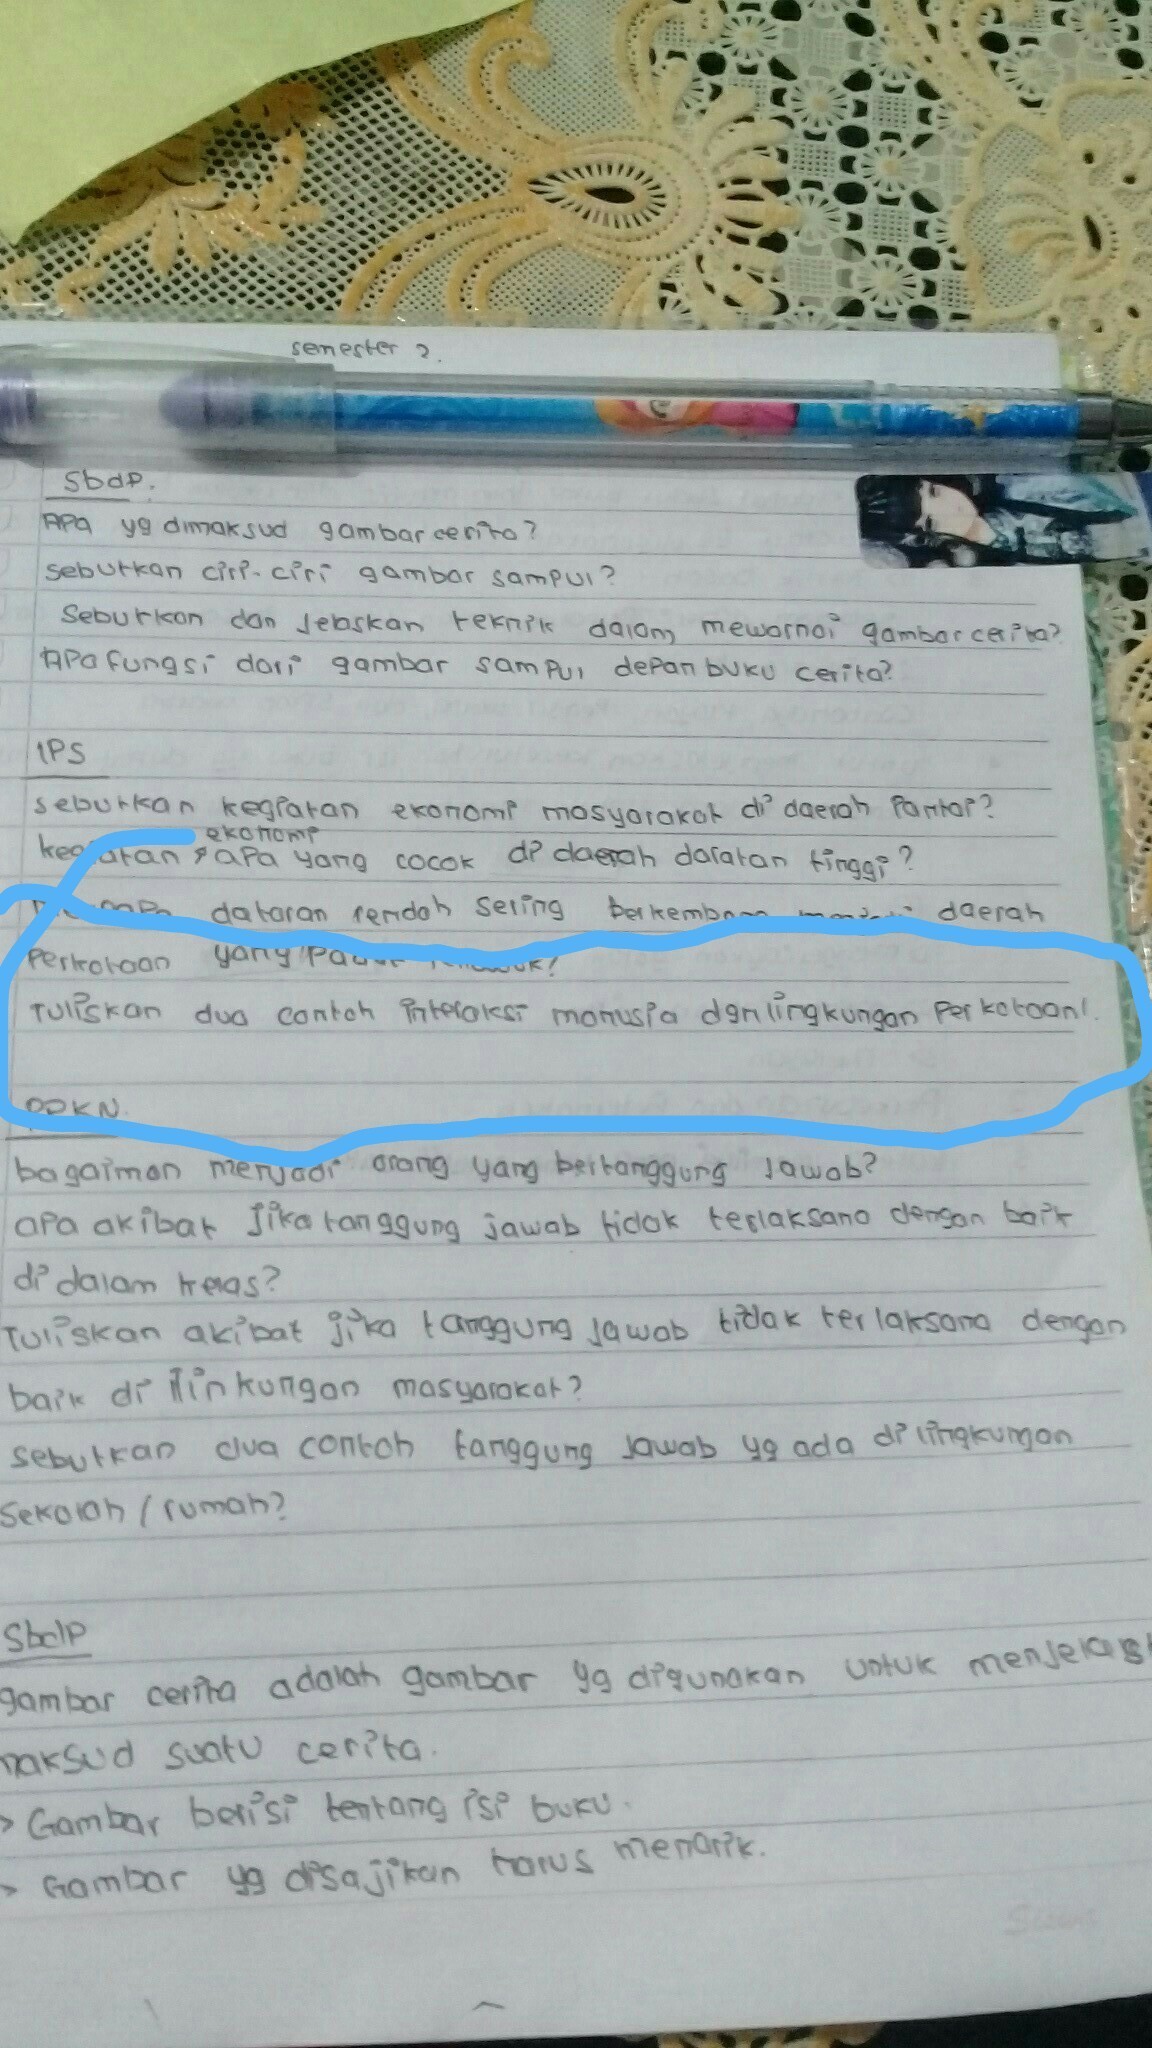 semester 2.
Sbdp.
Apa yg dimaksud gambar cerita?
seburkan ciri-ciri gambar sampul?
Seburkan dan Jelaskan teknik dalam mewarnai gambar cerita?
Apa fungsi dari gambar sampul depan buku cerita?
IPS
seburkan kegiatan ekonomi masyarakat di daerah Pantai?
ekonomi
kegiatan apa yang cocok di daerah dataran tinggi?
dataran rendah sering berkembang menjadi daerah
Perkotaan yang
Tuliskan dua contoh interaksi manusia dgn lingkungan Perkotaan!
PPKN.
bagaiman menjadi orang yang bertanggung Jawab?
apa akibat jika tanggung jawab tidak terlaksana dengan baik
di dalam kelas?
Tuliskan akibat jika tanggung Jawab tidak terlaksana dengan
baik di linkungan masyarakat?
sebutkan dua contoh tanggung Jawab yg ada di lingkungan
Sekolah / rumah?
SbdP
gambar cerita adalah gambar yg digunakan untuk
maksud suatu cerita.
> Gambar berisi tentang isi buku.
> Gambar yg disajikan harus menarik.